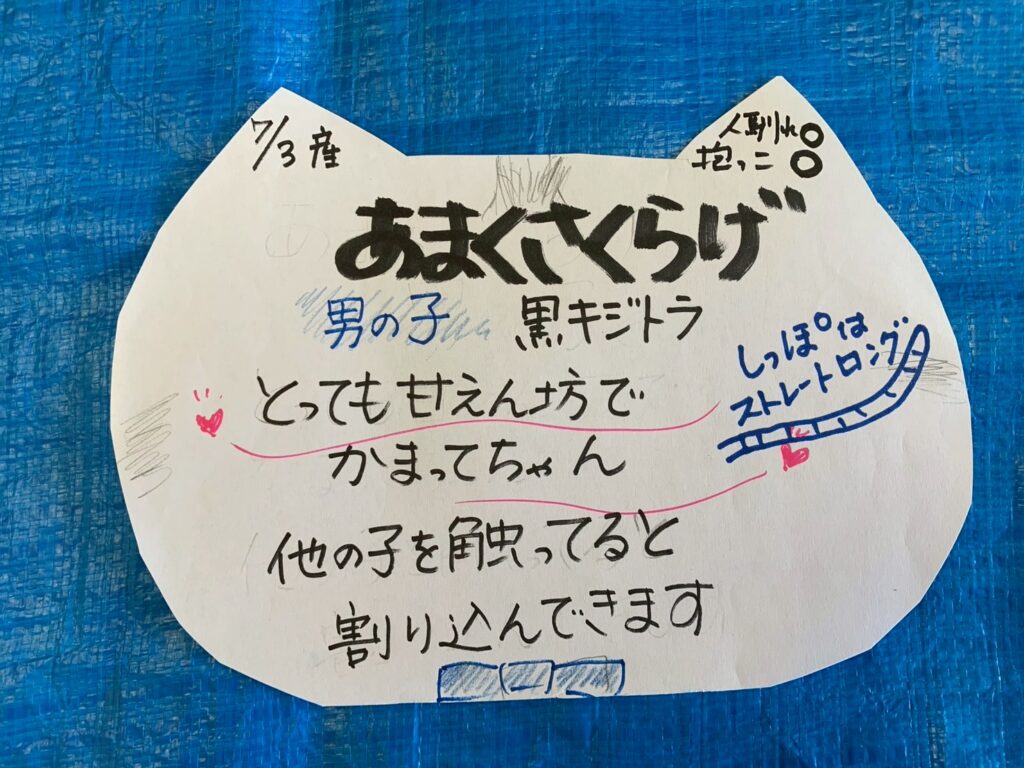 7/3産
人馴れ○
抱っこ○
あまくさくらげ
男の子 黒キジトラ
しっぽは
ストレートロング
とっても甘えん坊で
かまってちゃん
他の子を触ってると
割り込んできます